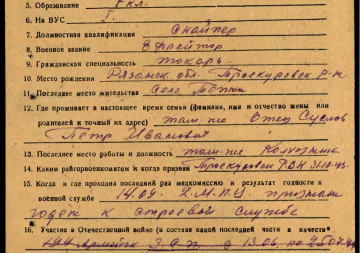 5. Образование 7 кл.
6. На ВУС 1.
7. Должностная квалификация снайпер
8. Военное звание Ефрейтор
9. Гражданская специальность токарь
10. Место рождения Рязанск обл. Троекуровск р-н
11. Последнее место жительства Село
12. Где проживает в настоящее время семья (фамилия, имя и отчество жены или
родителей и точный их адрес) там-же Отец Суслов
Пётр Иванович
13. Последнее место работы и должность там-же Колхозник
14. Каким райгорвоенкоматом и когда призван Троекуровск РВК
15. Когда и где проходил последний раз медкомиссию и результат годности к
военной службе 14.09. признан
годен к строевой службе
16. Участие в Отечественной войне (в составе какой последней части и в качестве
З.С.П. с 13.06. по